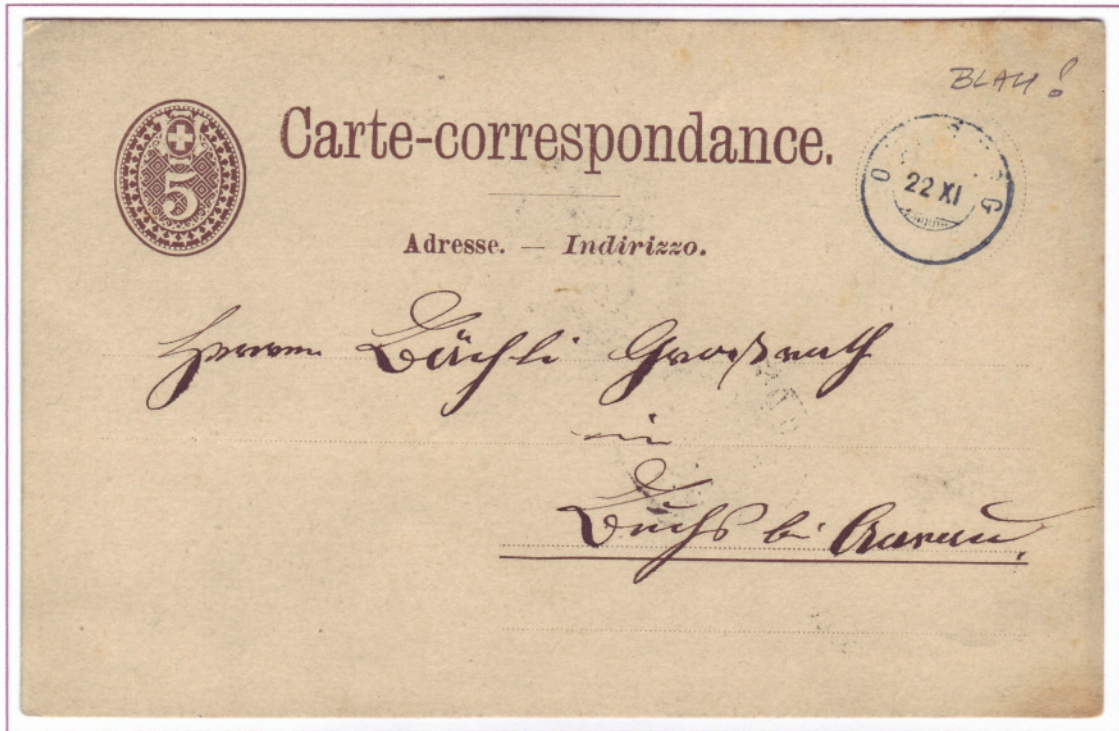 BLAU!
5
Carte-correspondance.
22 XI
Adresse. — Indirizzo.
Herren Bächli Grossrath
in
Buchs bei Aarau.